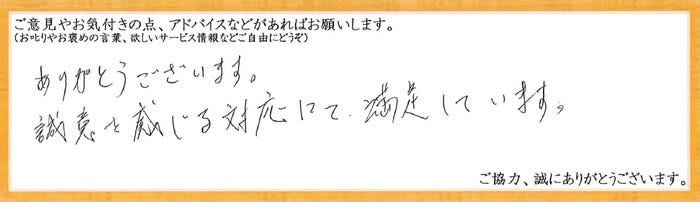 ご意見やお気付きの点、アドバイスなどがあればお願いします。
(お叱りやお褒めの言葉、欲しいサービス情報などご自由にどうぞ)
ありがとうございます。
誠意を感じる対応にて、満足しています。
ご協力、誠にありがとうございます。